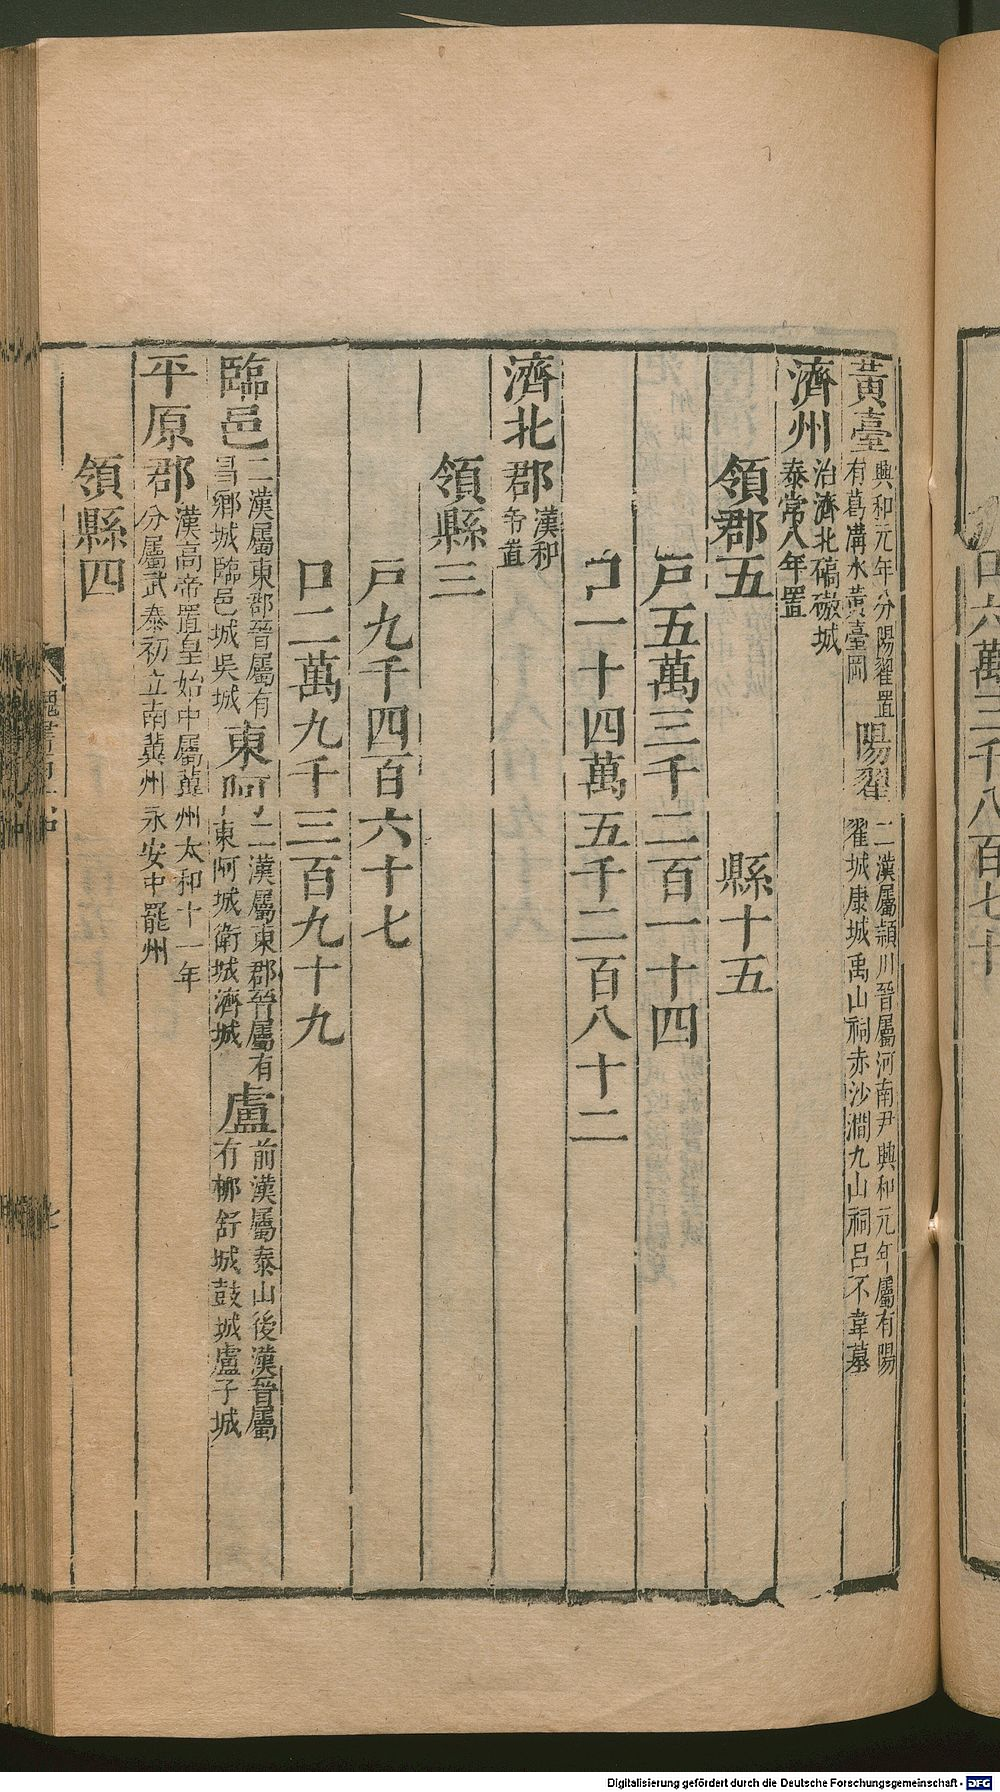 黃臺 興和元年分陽翟置有葛溝水黃臺岡 陽翟 二漢屬潁川晉屬河南尹興和元年屬有陽翟城康城禹山祠赤沙澗九山祠呂不韋墓
濟州 治濟北碻磝城泰常八年置
領郡五 縣十五
戸五萬三千二百一十四
口一十四萬五千二百八十二
濟北郡 漢和帝置
領縣三
戸九千四百六十七
口二萬九千三百九十九
臨邑 二漢屬東郡晉屬有昌鄉城臨邑城吳城 東阿 二漢屬東郡晉屬有東阿城衛城濟城 盧 前漢屬泰山後漢晉屬有柳舒城鼓城盧子城
平原郡 漢高帝置皇始中屬冀州太和十一年分屬武泰初立南冀州永安中罷州
領縣四
口六萬三千八百七十
Digitalisierung gefördert durch die Deutsche Forschungsgemeinschaft - DFG